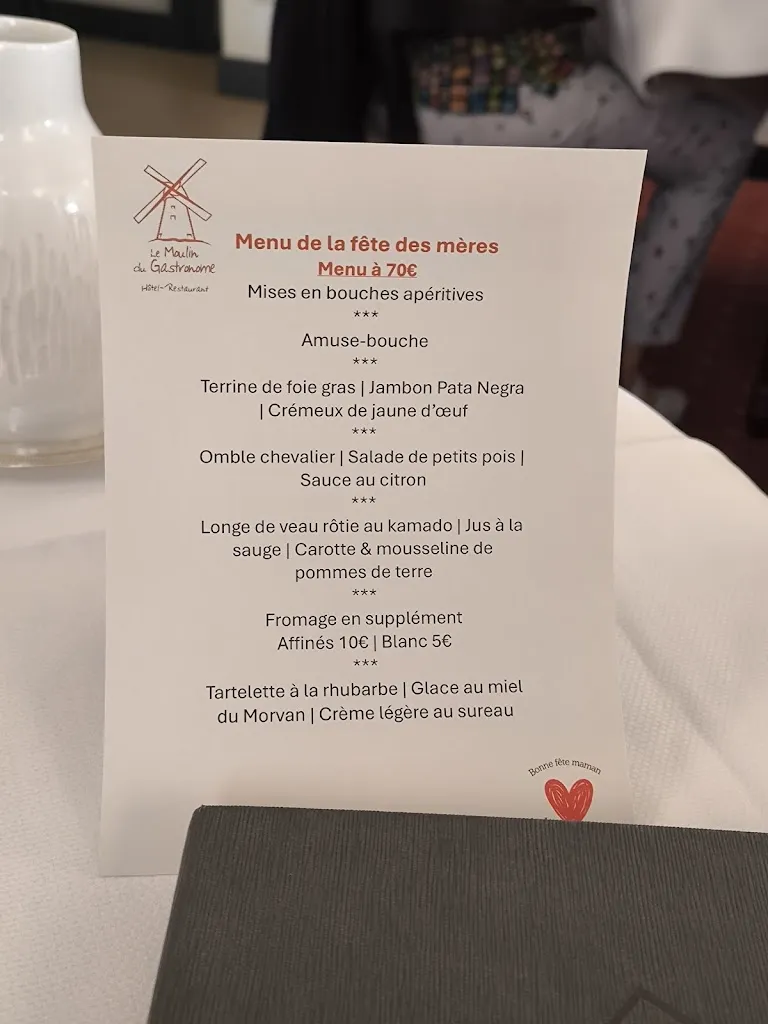 Le Moulin
du Gastronome
Hôtel~Restaurant
Menu de la fête des mères
Menu à 70€
Mises en bouches apéritives
***
Amuse-bouche
***
Terrine de foie gras | Jambon Pata Negra
| Crémeux de jaune d'œuf
***
Omble chevalier | Salade de petits pois |
Sauce au citron
***
Longe de veau rôtie au kamado | Jus à la
sauge | Carotte & mousseline de
pommes de terre
***
Fromage en supplément
Affinés 10€ | Blanc 5€
***
Tartelette à la rhubarbe | Glace au miel
du Morvan | Crème légère au sureau
Bonne fête maman